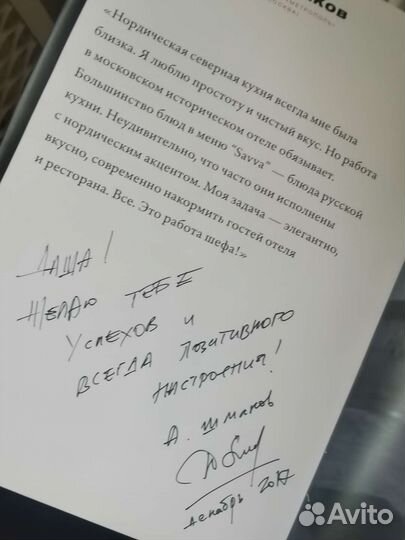 КОВ
МЕТРОПОЛЬ»
МОСКВА)
«Нордическая северная кухня всегда мне была
близка. Я люблю простоту и чистый вкус. Но работа
в московском историческом отеле обязывает.
Большинство блюд в меню "Savva" — блюда русской
кухни. Неудивительно, что часто они исполнены
с нордическим акцентом. Моя задача — элегантно,
вкусно, современно накормить гостей отеля
и ресторана. Все. Это работа шефа!»
ДАША!
ЖЕЛАЮ ТЕБЕ
УСПЕХОВ И
ВСЕГДА ПОЗИТИВНОГО
НАСТРОЕНИЯ!
А. ШМАКОВ
декабрь 2017
Avito